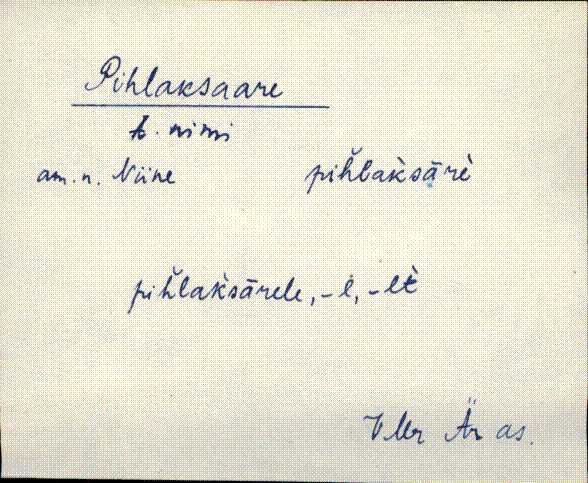 Pihlaksaare
t. nimi
am. n. Niine pih̆lak̀sārè
pih̆lak̀sārele, -l, -lt
V Mr Är as.